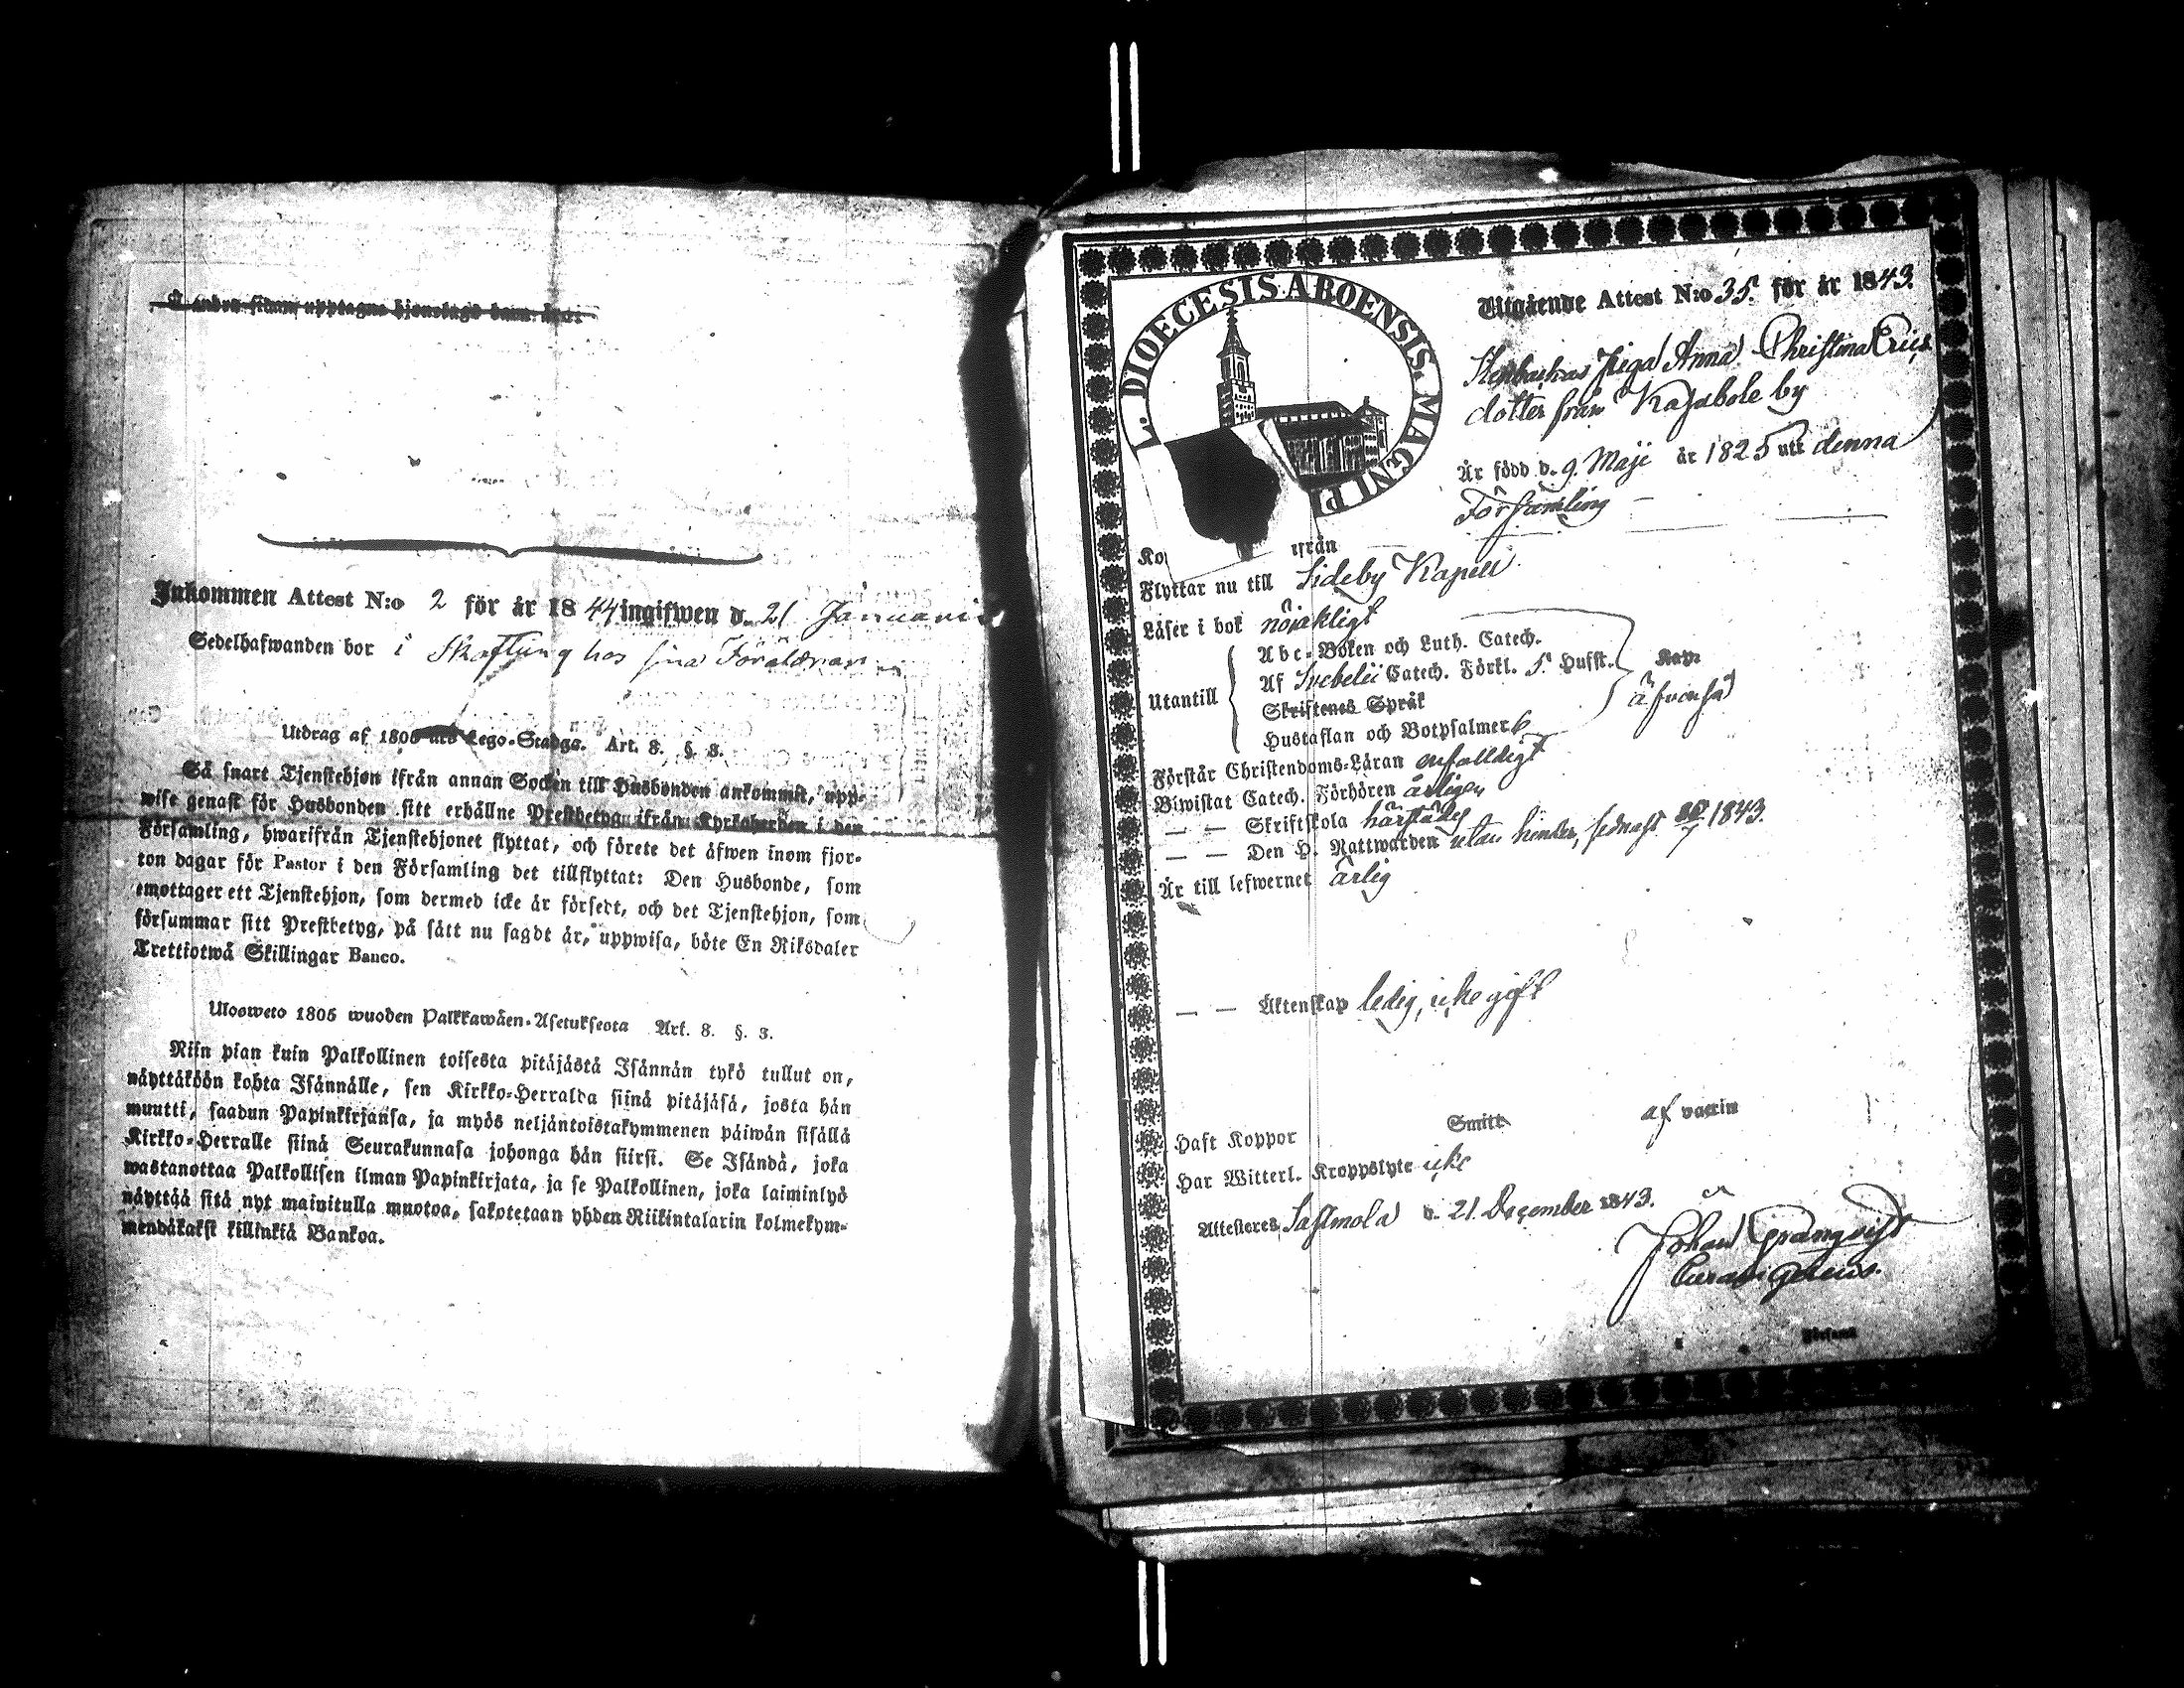 Å andra sidan upptagne hjonelags barn äro:
Inkommen Attest N:o 2 för år 1844 ingifwen d. 21 Januarii
Sedelhafwanden bor i Skaftung hos sina Föräldrar
Utdrag af 1805 års Lego-Stadga. Art. 8. §. 3.
Så snart Tjenstehjon ifrån annan Socken till Husbonden ankommit, upp-
wise genast för Husbonden sitt erhållne Prestbetyg ifrån Kyrkoherden i den
Församling, hwarifrån Tjenstehjonet flyttat, och förete det äfwen inom fjor-
ton dagar för Pastor i den Församling det tillflyttat: Den Husbonde, som
emottager ett Tjenstehjon, som dermed icke är försedt, och det Tjenstehjon, som
försummar sitt Prestbetyg, på sätt nu sagdt är, uppwisa, böte En Riksdaler
Trettiotwå Skillingar Banco.
Ulosweto 1805 wuoden Palkkawäen-Asetuksesta Art. 8. §. 3.
Niin pian kuin Palkollinen toisesta pitäjästä Isännän tykö tullut on,
näyttäköön kohta Isännälle, sen Kirkko-Herralda siinä pitäjäsä, josta hän
muutti, saadun Papinkirjansa, ja myös neljäntoistakymmenen päiwän sisällä
Kirkko-Herralle siinä Seurakunnasa johonga hän siirsi. Se Isändä, joka
wastanottaa Palkollisen ilman Papinkirjata, ja se Palkollinen, joka laiminlyö
näyttää sitä nyt mainitulla muotoa, sakotetaan yhden Riikintalarin kolmekym-
mendäkaksi killinkiä Bankoa.
L. DIOECESIS ABOENSIS. MAGNI PI
Utgående Attest N:o 35. för år 1843.
Pigan Anna Christina Erics
dotter från Kasabole by
Är född d. 9. Maji år 1825 uti denna
Församling
Ko ifrån
Flyttar nu till Sideby Kapell
Läser i bok nöjakligt
Abc-Boken och Luth. Catech.
Utantill Af Svebelii Catech. Förkl. 5. Hufst.
äfvenså
Skriftenes Språk
Hustaflan och Botpsalmer 6
Förstår Christendoms-Läran enfalldigt
Biwistat Catech. Förhören årligen
— — Skriftskola härstädes
— — Den H. Nattwarden utan hinder, sednast 1843.
Är till lefwernet ärlig
— — Äktenskap ledig, icke gift
Haft Koppor Smitt af vaccin
Har Witterl. Kroppslyte icke
Attesteres Sastmola d. 21. December 1843.
Johan Granqvist
Curam gerens.
Församl